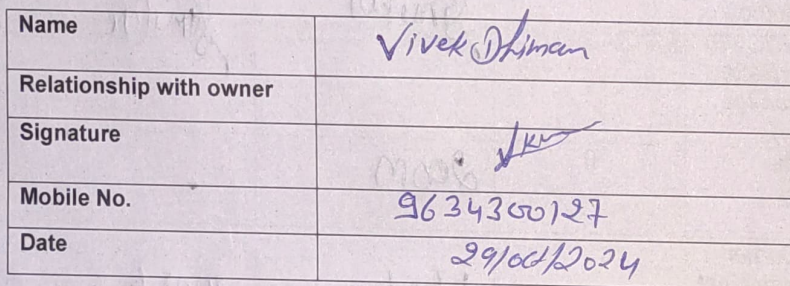 Name Vivek Dhiman
Relationship with owner
Signature
Mobile No. 9634300127
Date 29/oct/2024